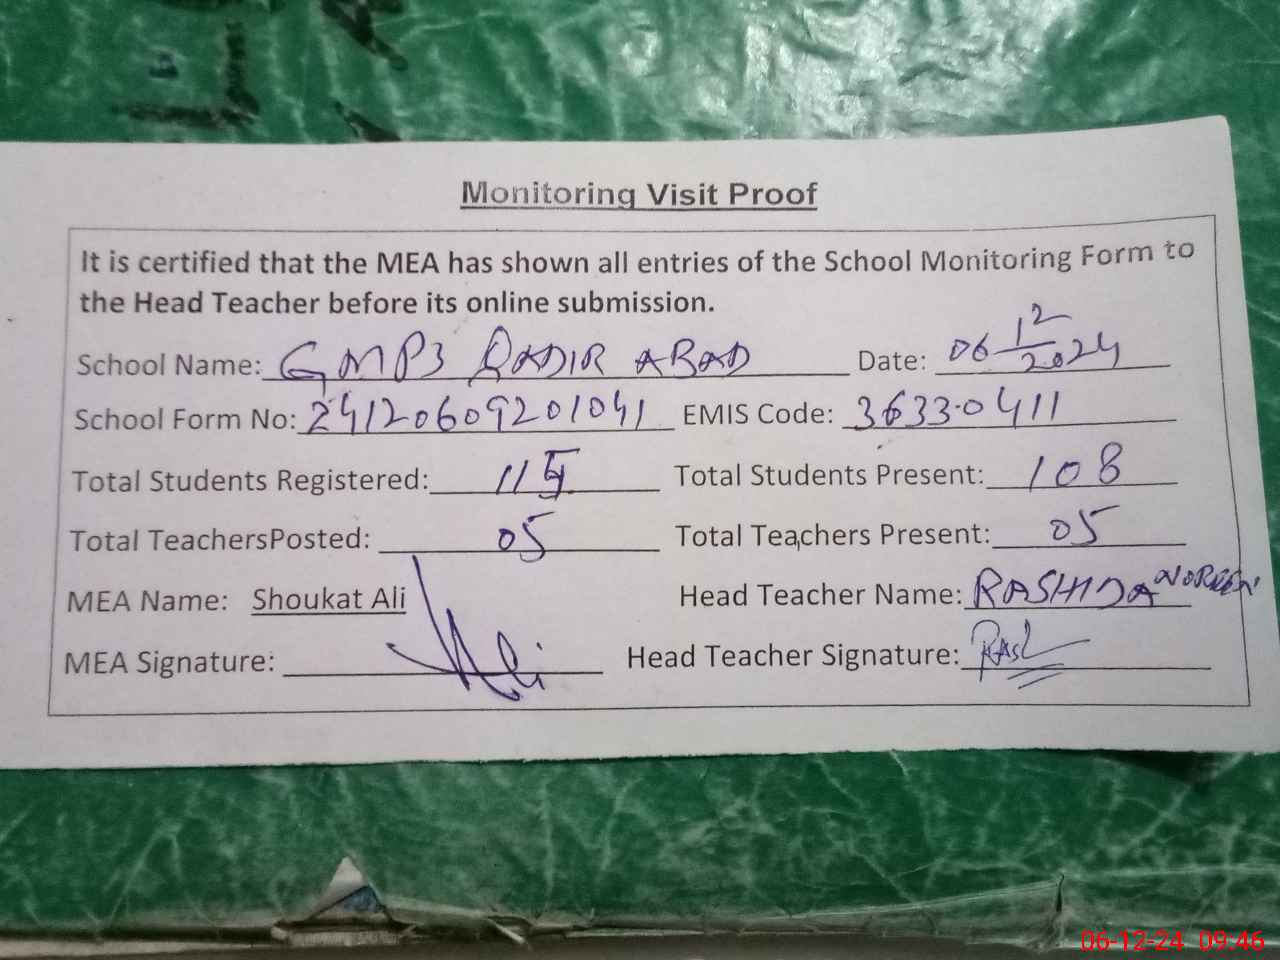 Monitoring Visit Proof
It is certified that the MEA has shown all entries of the School Monitoring Form to
the Head Teacher before its online submission.
School Name: GMPS QADIR ABAD Date: 06 12/2024
School Form No: 24120609201041 EMIS Code: 36330411
Total Students Registered: 115 Total Students Present: 108
Total TeachersPosted: 05 Total Teachers Present: 05
MEA Name: Shoukat Ali Head Teacher Name: RASHIDA NOREEN
MEA Signature: Ali Head Teacher Signature: Rash
06-12-24 09:46